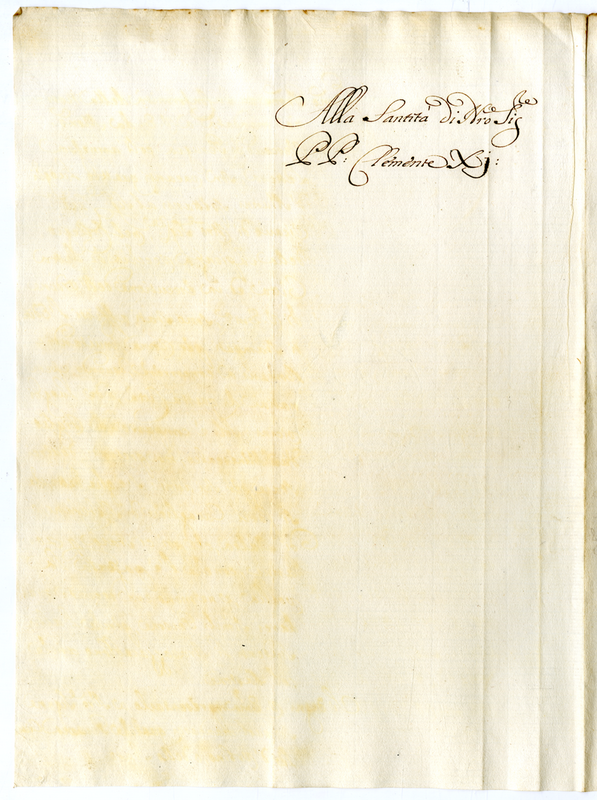 Alla Santità di Nro Sigre
PP: Clemente Xj: